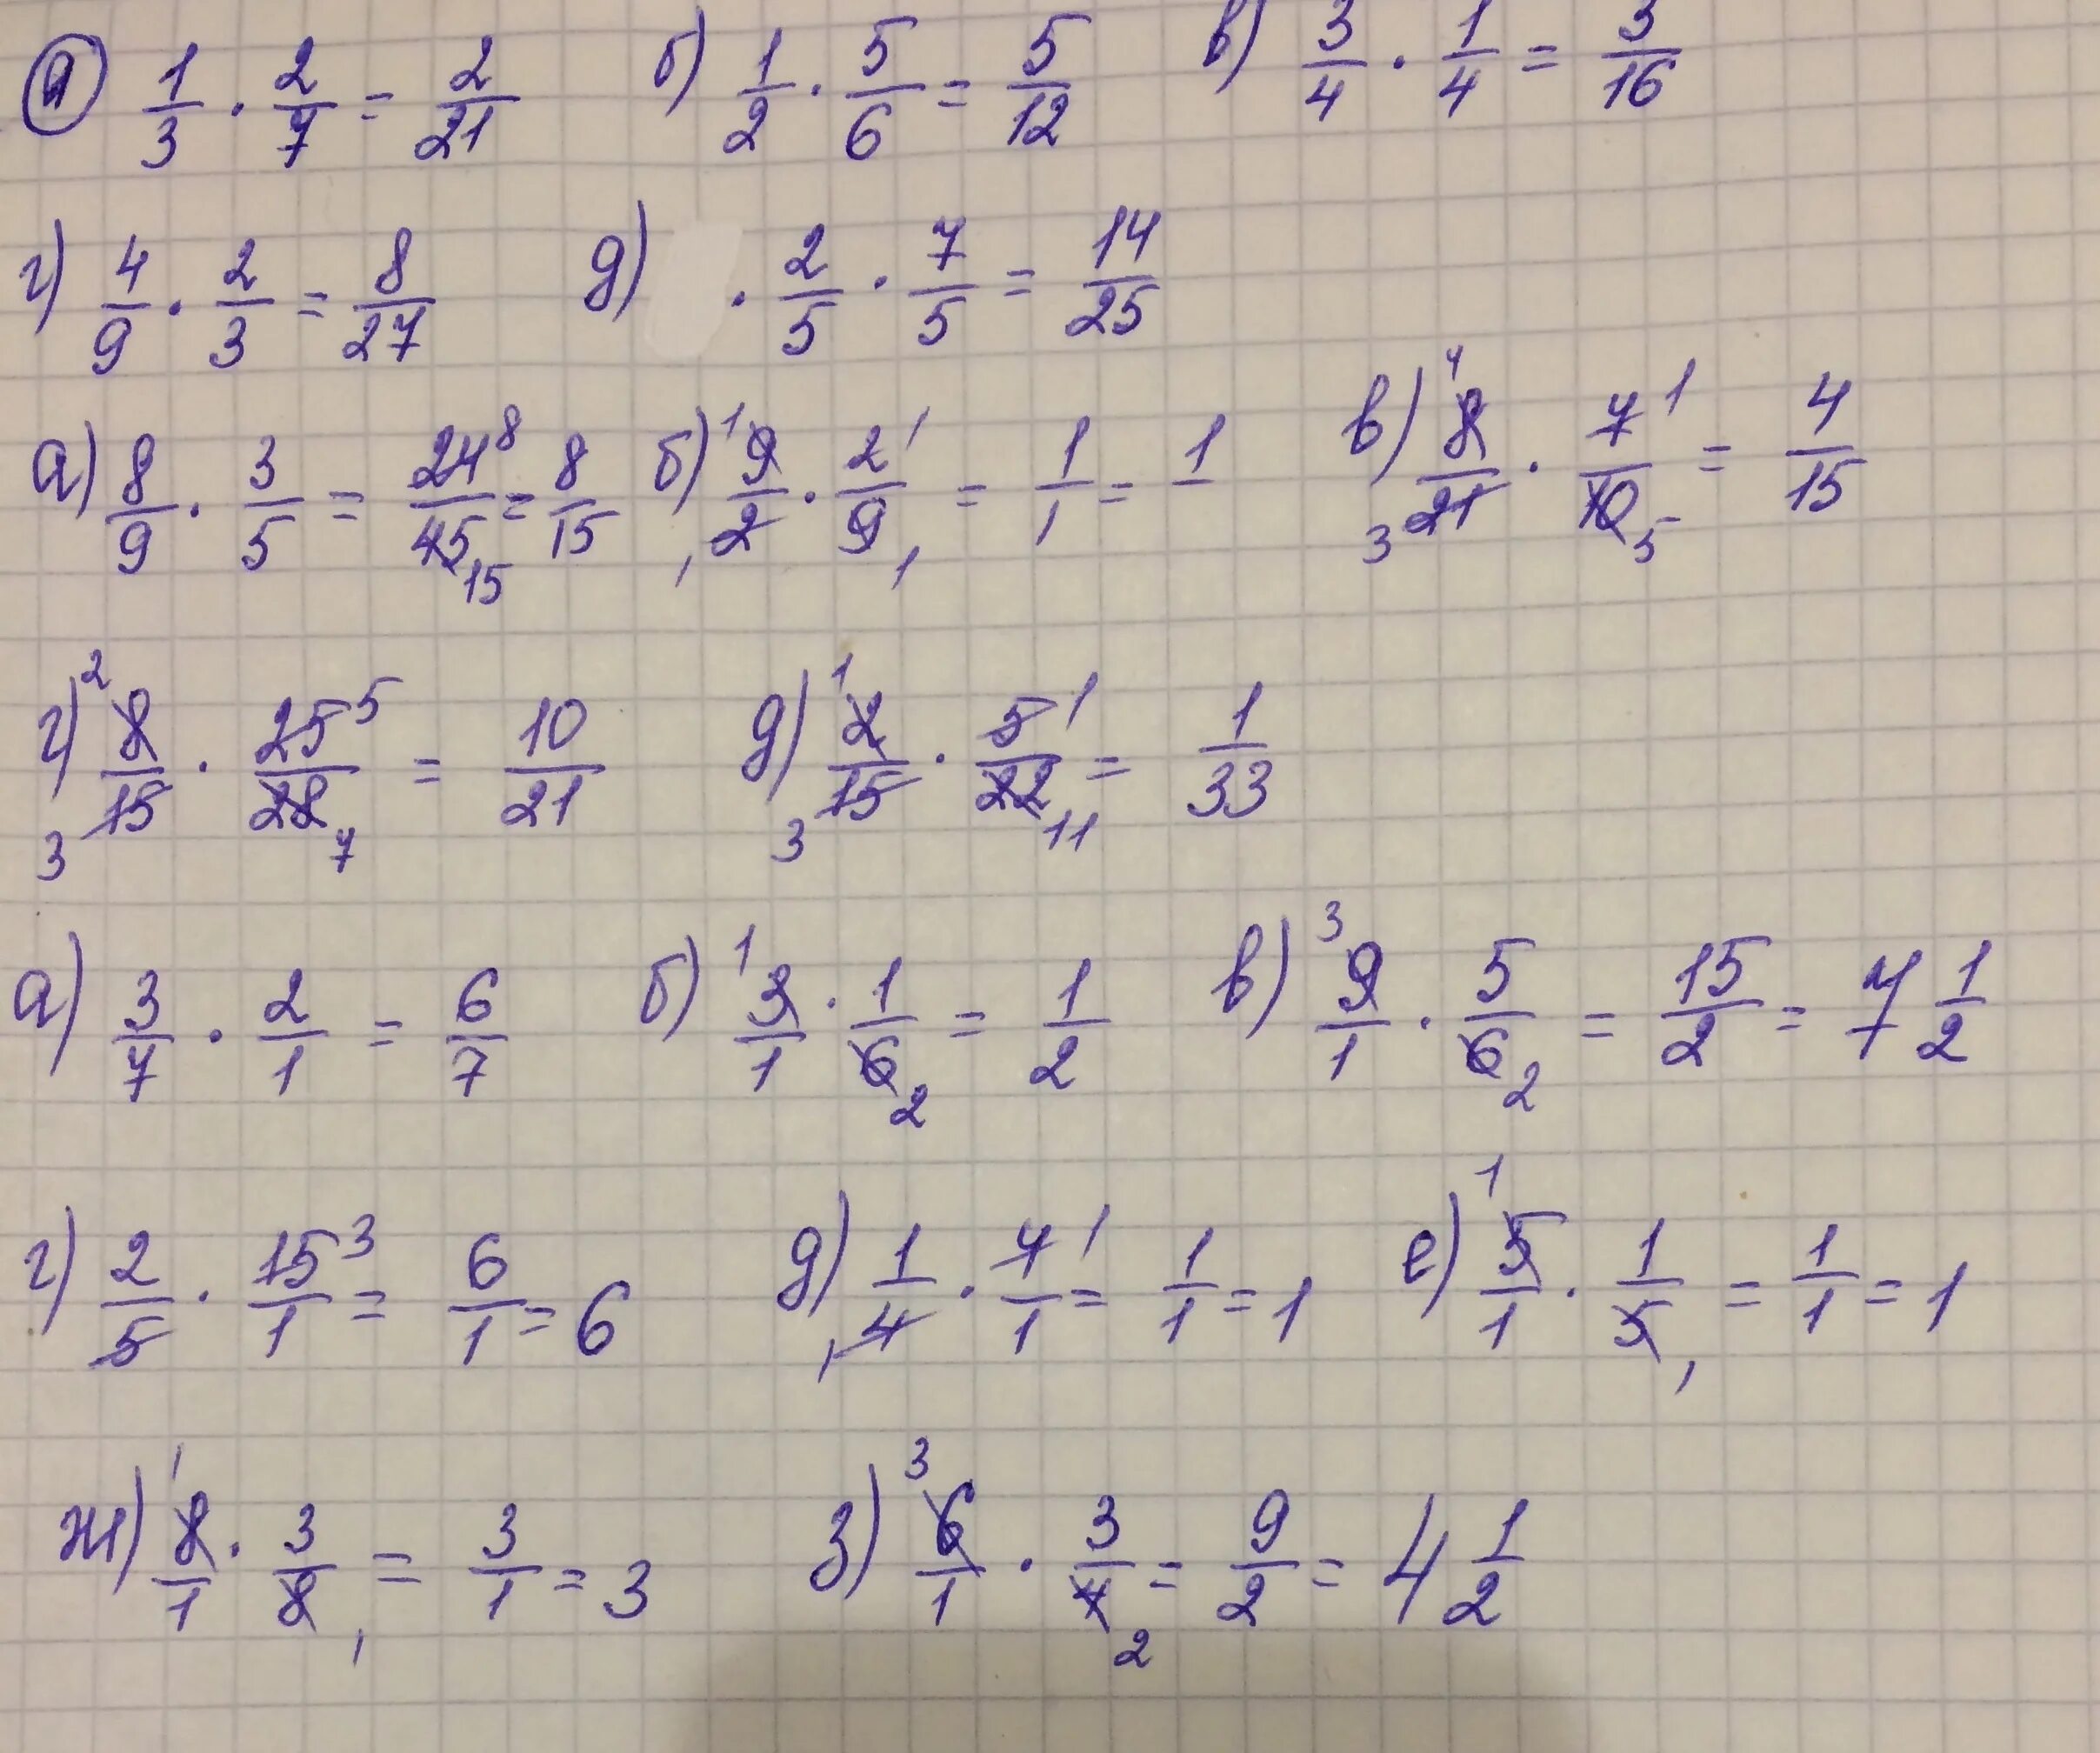 а) 1/3 · 2/7 = 2/21 б) 1/2 · 5/6 = 5/12 в) 3/4 · 1/4 = 3/16
г) 4/9 · 2/3 = 8/27 д) · 2/5 · 7/5 = 14/25
а) 8/9 · 3/5 = 24 8/45 15 = 8/15 б) 1 9/1 2 · 2 1/9 1 = 1/1 = 1 в) 4 8/3 21 · 7 1/10 5 = 4/15
г) 2 8/3 15 · 25 5/28 7 = 10/21 д) 1 2/3 15 · 5 1/22 11 = 1/33
а) 3/7 · 2/1 = 6/7 б) 1 3/1 · 1/6 2 = 1/2 в) 3 9/1 · 5/6 2 = 15/2 = 7 1/2
г) 2/5 · 15 3/1 = 6/1 = 6 д) 1/1 4 · 4 1/1 = 1/1 = 1 е) 1 5/1 · 1/5 1 = 1/1 = 1
ж) 1 8/1 · 3/8 1 = 3/1 = 3 з) 3 6/1 · 3/4 2 = 9/2 = 4 1/2